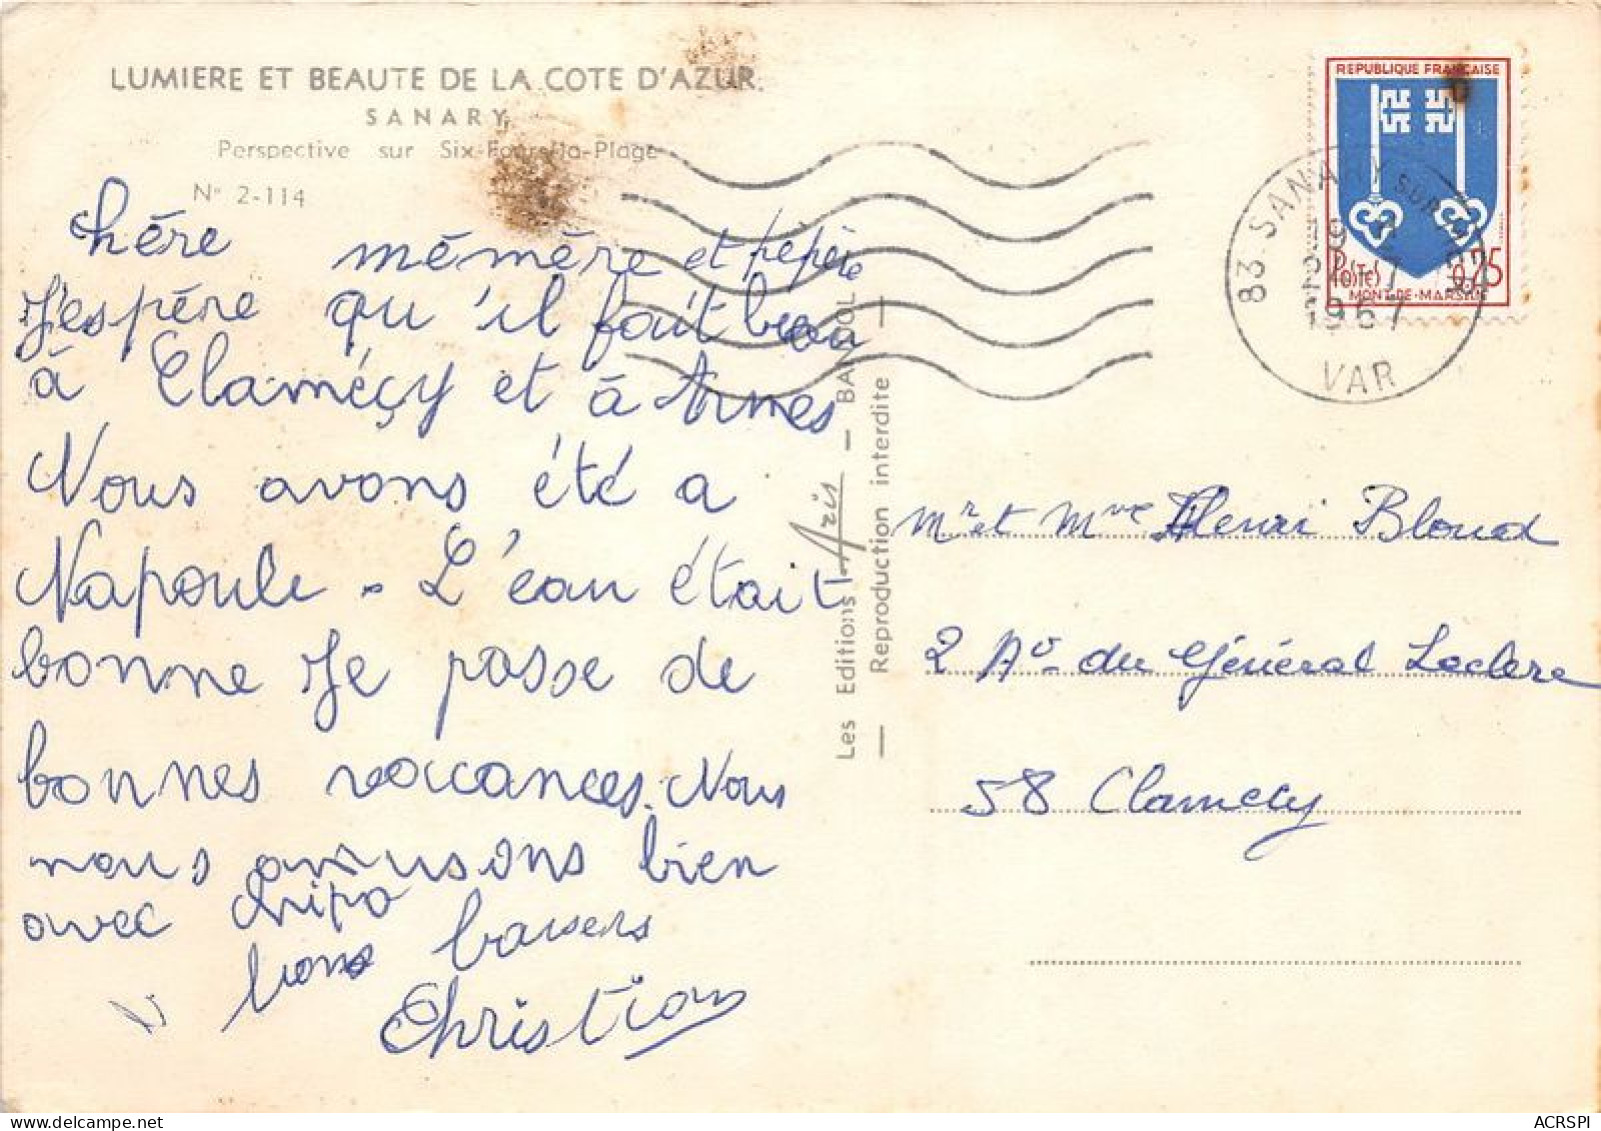 LUMIERE ET BEAUTE DE LA COTE D'AZUR.
SANARY,
Perspective sur Six-Fours-la-Plage
N° 2-114
chére mémére et pepére
J'espére qu'il fait beau
à Clameçy et à Armes
Nous avons été a
Napoule - L'eau était
bonne Je passe de
bonnes vaccances. Nous
nous amusons bien
avec
bons baisers
Christian
Les Editions Aris — BANDOL
— Reproduction interdite —
REPUBLIQUE FRANÇAISE
POSTES 0,25
MONT-DE-MARSAN
83 SANARY SUR MER
1967
VAR
Mr et Mme Henri Bloud
2 Av. du Général Leclerc
58 Clamecy
ACRSPI